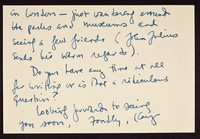 in London – just wandering around
the parks and museums and
seeing a few friends (Jean Julius
sends his warm regards).
Do you have any time at all
for writing or is that a ridiculous
question?
Looking forward to seeing
you soon, Fondly,